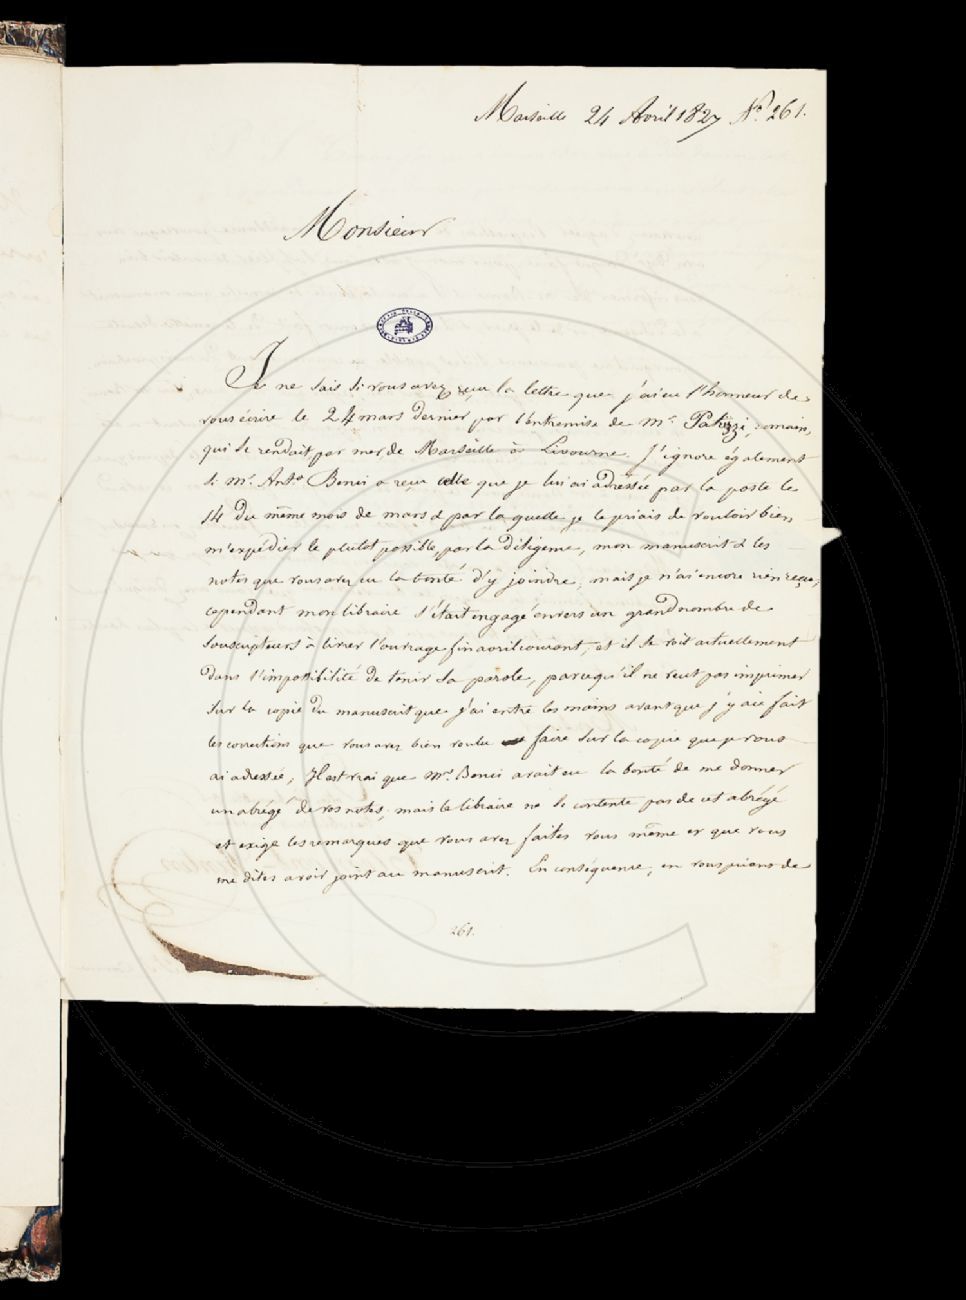 Marseille 24 Avril 1827 N.º 261.
Monsieur
Je ne sais si vous avez reçu la lettre que j'ai eu l'honneur de
vous écrire le 24 mars dernier par l'entremise de Mr. romain,
qui se rendait par mer de Marseille à Livourne. J'ignore également
si Mr. Anto. Benci a reçu celle que je lui ai adressée par la poste le
14 du même mois de mars & par laquelle je le priais de vouloir bien
m'expédier le plutot possible, par la diligence, mon manuscrit & les
notes que vous avez eu la bonté d'y joindre; mais je n'ai encore rien reçu;
cependant mon libraire s'était engagé envers un grand nombre de
souscripteurs à livrer l'ouvrage fin avril courant, et il se voit actuellement
dans l'impossibilité de tenir sa parole, parcequ'il ne veut pas imprimer
sur la copie du manuscrit que j'ai entre les mains avant que j'y aie fait
les corrections que vous avez bien voulu faire sur la copie que je vous
ai adressée; Il est vrai que Mr. Benci avait eu la bonté de me donner
un abrégé de vos notes; mais le libraire ne se contente pas de cet abrégé
et exige les remarques que vous avez faites vous même et que vous
me dites avoir joint au manuscrit. En conséquence, en vous priant de
261.